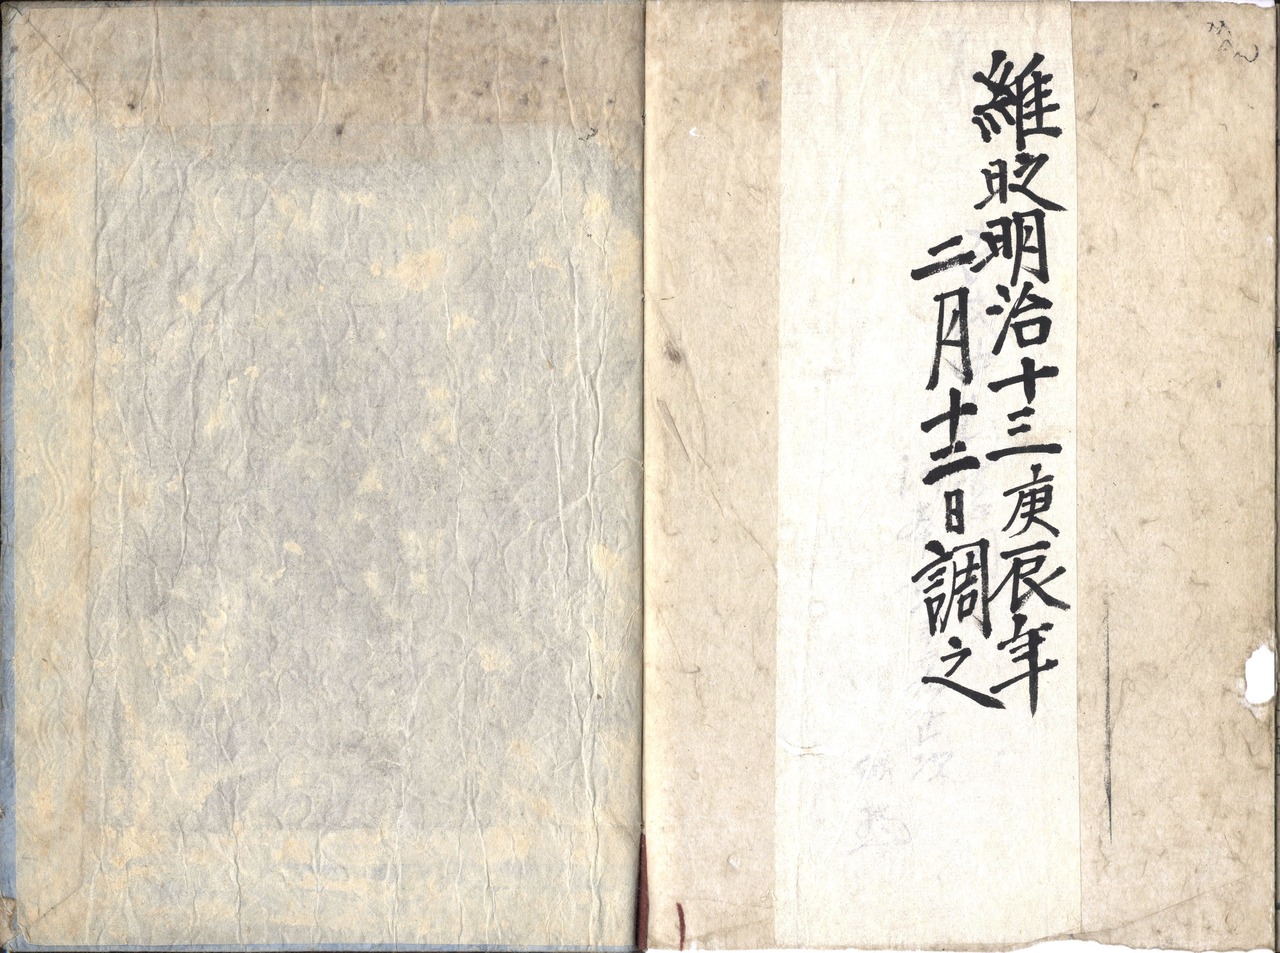 維時明治十三庚辰年
二月十二日調之